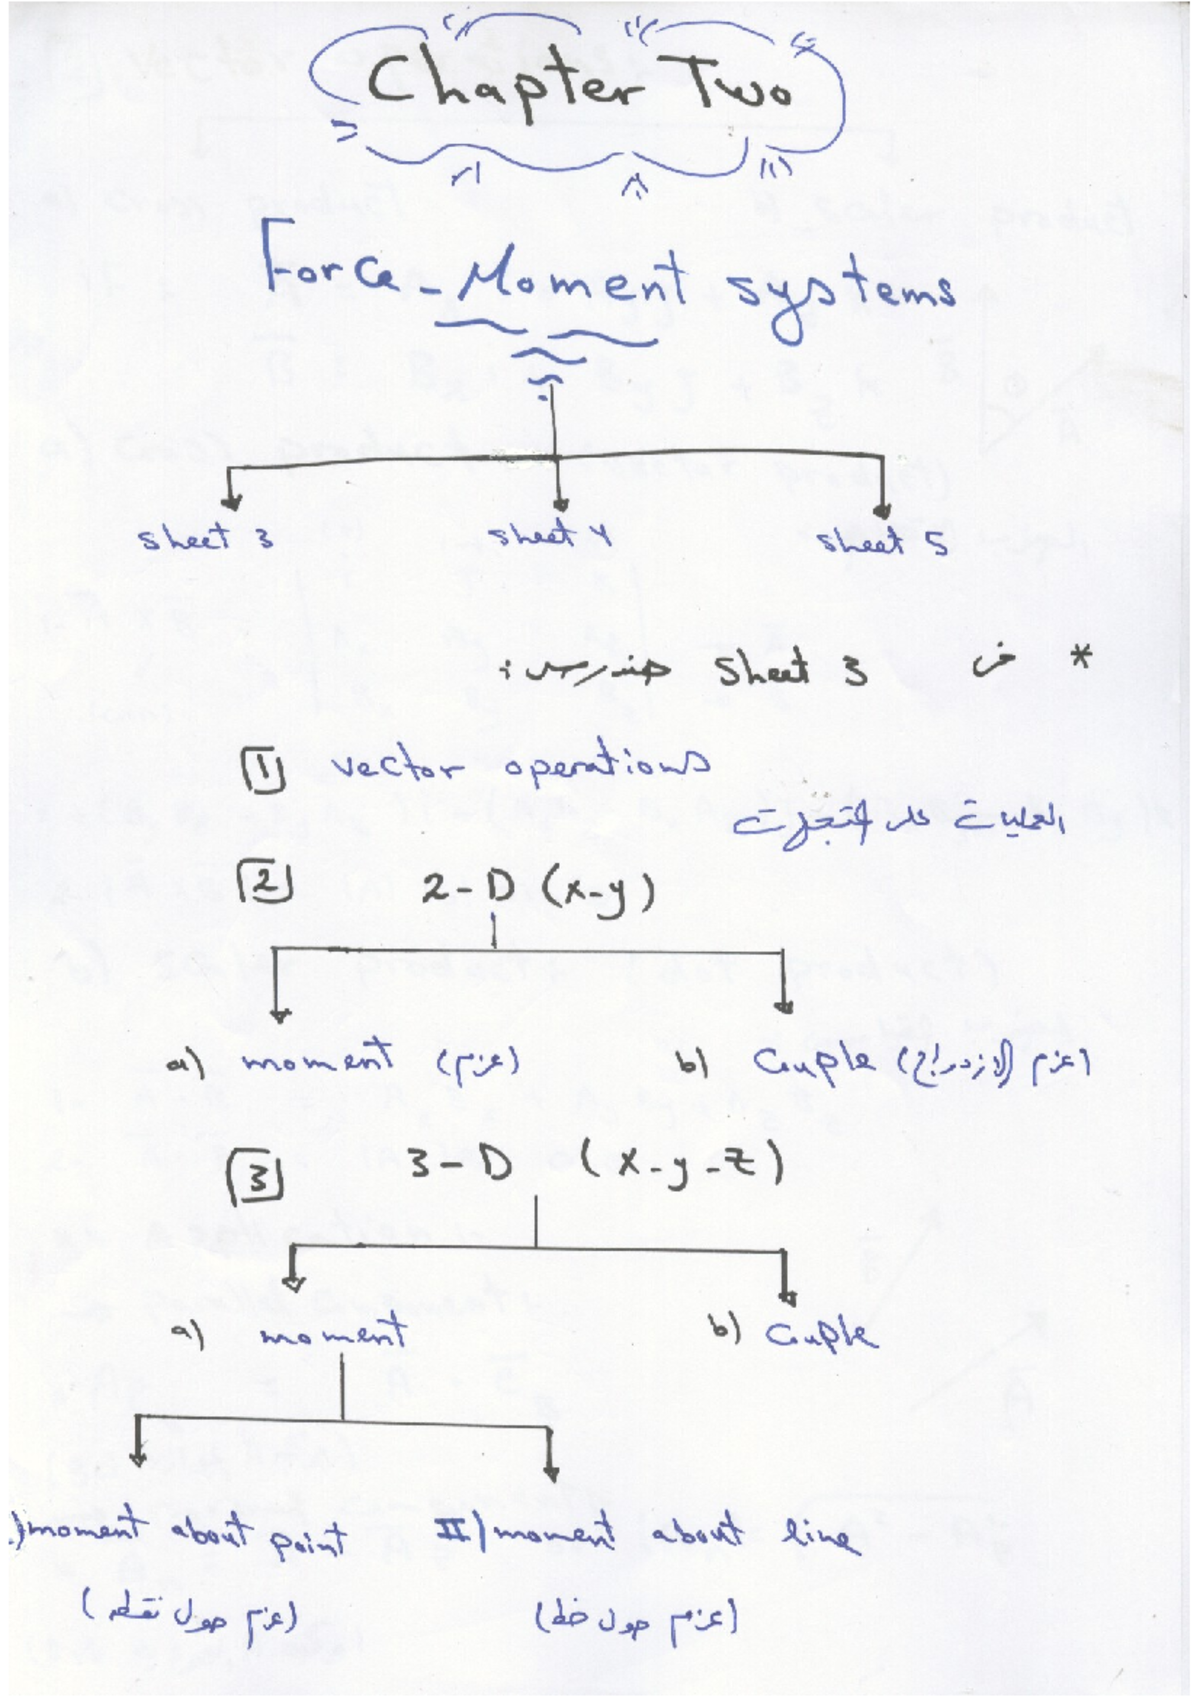 Chapter Two
Force-Moment systems
sheet 3 sheet 4 sheet 5
* في sheet 3 هندرس :
1 vector operations
العمليات على المتجهات
2 2-D (x-y)
a) moment (عزم) b) Couple (عزم الازدواج)
3 3-D (x-y-z)
a) moment b) Couple
) moment about point II) moment about line
(عزم حول نقطه) (عزم حول خط)